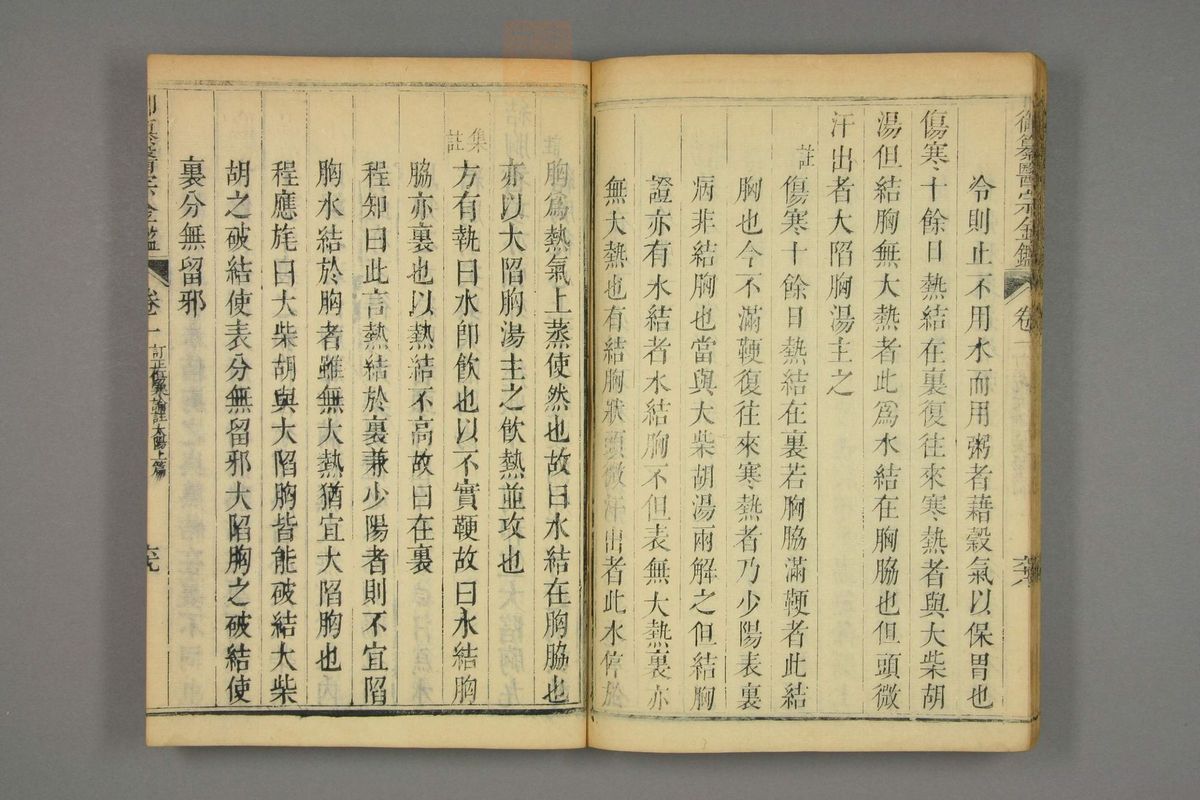 御纂醫宗金鑑 卷一
令則止不用水而用粥者藉穀氣以保胃也
傷寒十餘日熱結在裏復往來寒熱者與大柴胡
湯但結胸無大熱者此為水結在胸脇也但頭微
汗出者大陷胸湯主之
註 傷寒十餘日熱結在裏若胸脇滿鞕者此結
胸也今不滿鞕復往來寒熱者乃少陽表裏
病非結胸也當與大柴胡湯兩解之但結胸
證亦有水結者水結胸不但表無大熱裏亦
無大熱也有結胸狀頭微汗出者此水停於
註 胸為熱氣上蒸使然也故曰水結在胸脇也
亦以大陷胸湯主之飲熱並攻也
集註 方有執曰水卽飲也以不實鞕故曰水結胸
脇亦裏也以熱結不高故曰在裏
程知曰此言熱結於裏兼少陽者則不宜陷
胸水結於胸者雖無大熱猶宜大陷胸也
程應旄曰大柴胡與大陷胸皆能破結大柴
胡之破結使表分無留邪大陷胸之破結使
裏分無留邪
卷一 訂正傷寒論註太陽上篇